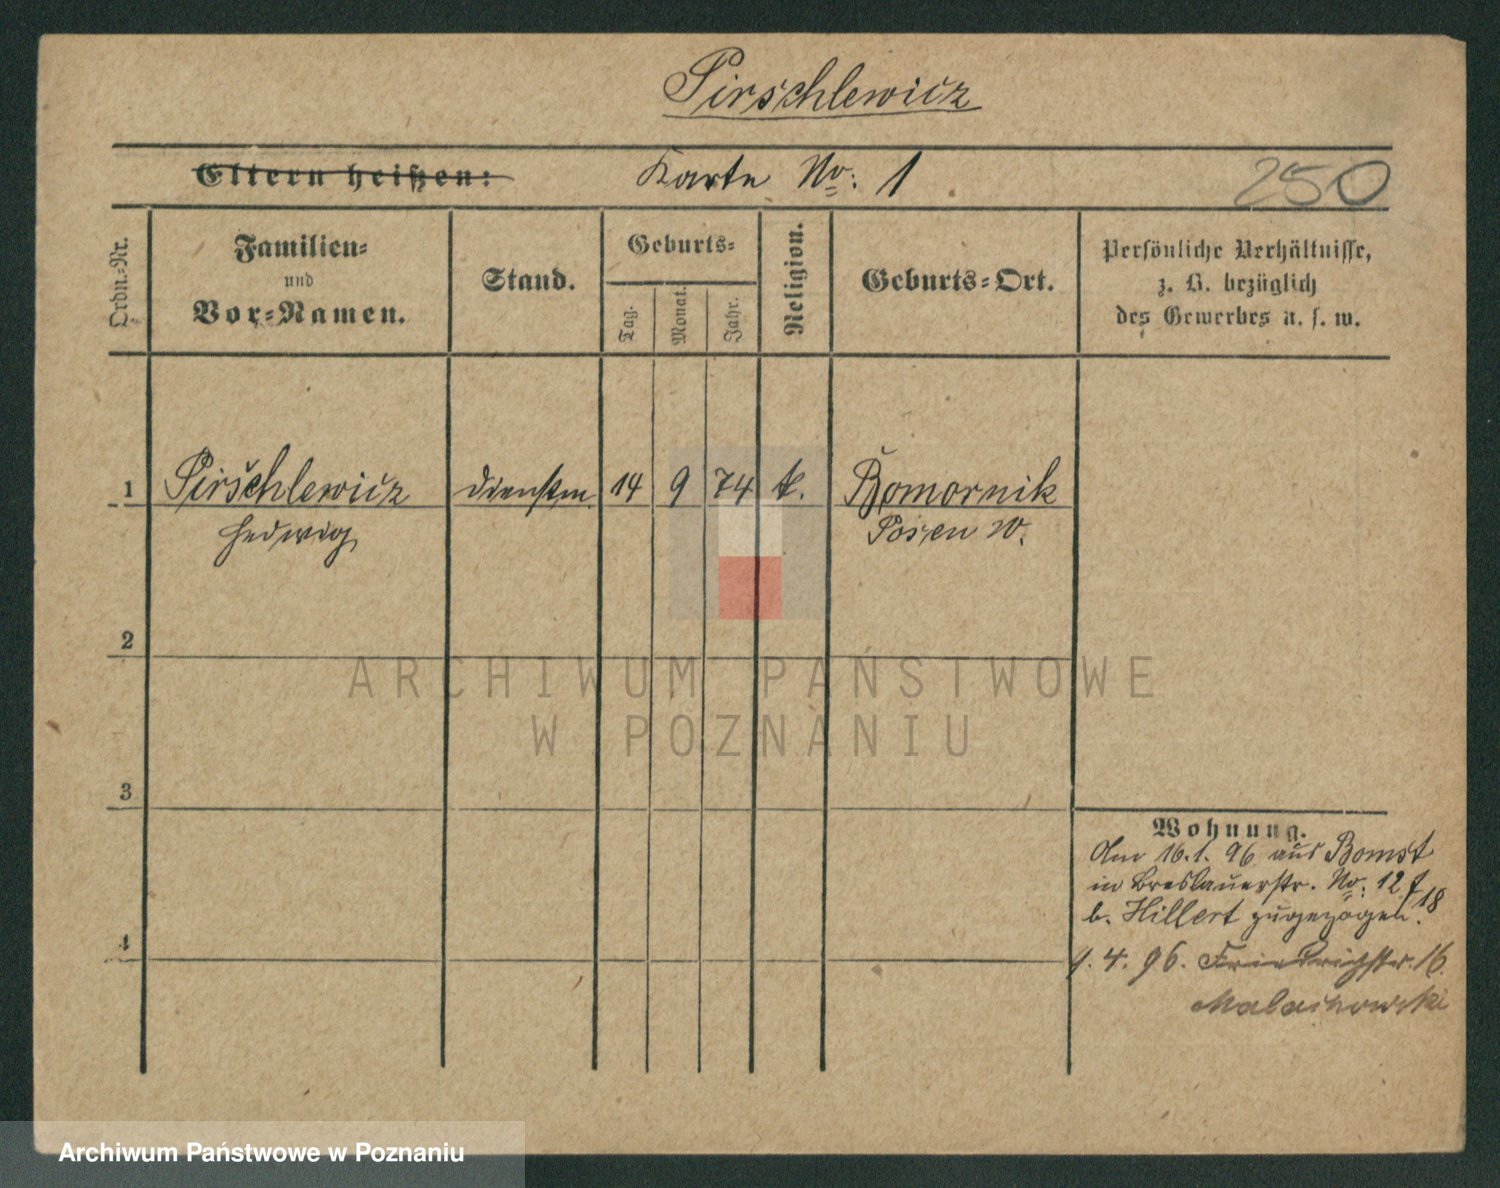 Pirschlewicz
Eltern heißen: Karte No: 1 250
Ordn.-Nr.
Familien-
und
Vor-Namen.
Stand.
Geburts-
Tag.
Monat.
Jahr.
Religion.
Geburts-Ort.
Persönliche Verhältnisse,
z. B. bezüglich
des Gewerbes u. s. w.
1 Pirschlewicz Dienstm. 14 9 74 k. Bomornik
Hedwig Posen W.
2
3
4
Wohnung.
Am 16.1. 96 aus Bomst
in Breslauerstr. No: 12
18
b. Hillert zugezogen.
9. 4. 96. Friedrichstr. 16.
Malachowski
ARCHIWUM PAŃSTWOWE
W POZNANIU
Archiwum Państwowe w Poznaniu